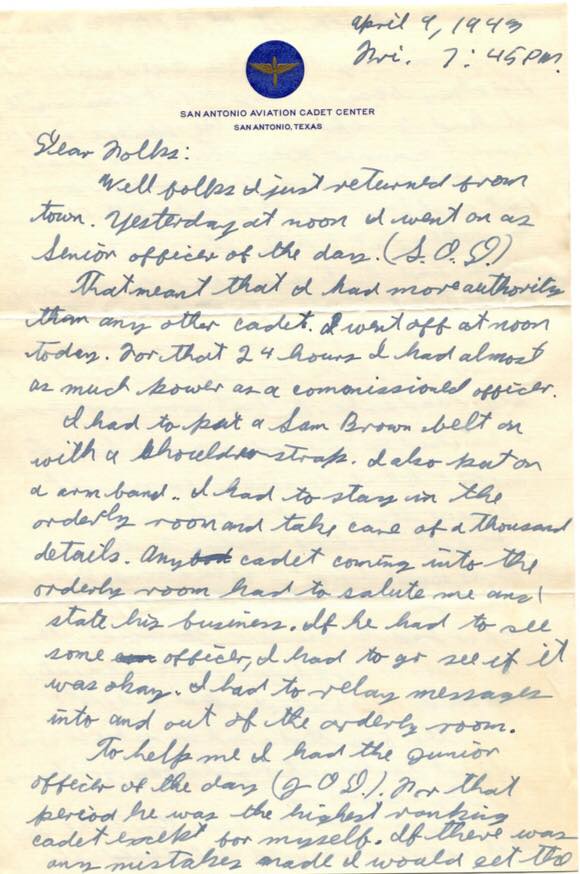 April 9, 1943
Fri. 7:45 PM.
SAN ANTONIO AVIATION CADET CENTER
SAN ANTONIO, TEXAS
Dear Folks:
Well folks I just returned from
town. Yesterday at noon I went on as
Senior officer of the day. (S.O.D.)
That meant that I had more authority
than any other cadet. I went off at noon
today. For that 24 hours I had almost
as much power as a commissioned officer.
I had to put a Sam Brown belt on
with a shoulder strap. I also put on
a arm band.. I had to stay in the
orderly room and take care of a thousand
details. Any cadet coming into the
orderly room had to salute me and
state his business. If he had to see
some officer, I had to go see if it
was okay. I had to relay messages
into and out of the orderly room.
To help me I had the junior
officer of the day (J.O.D.). For that
period he was the highest ranking
cadet except for myself. If there was
any mistakes made I would get the